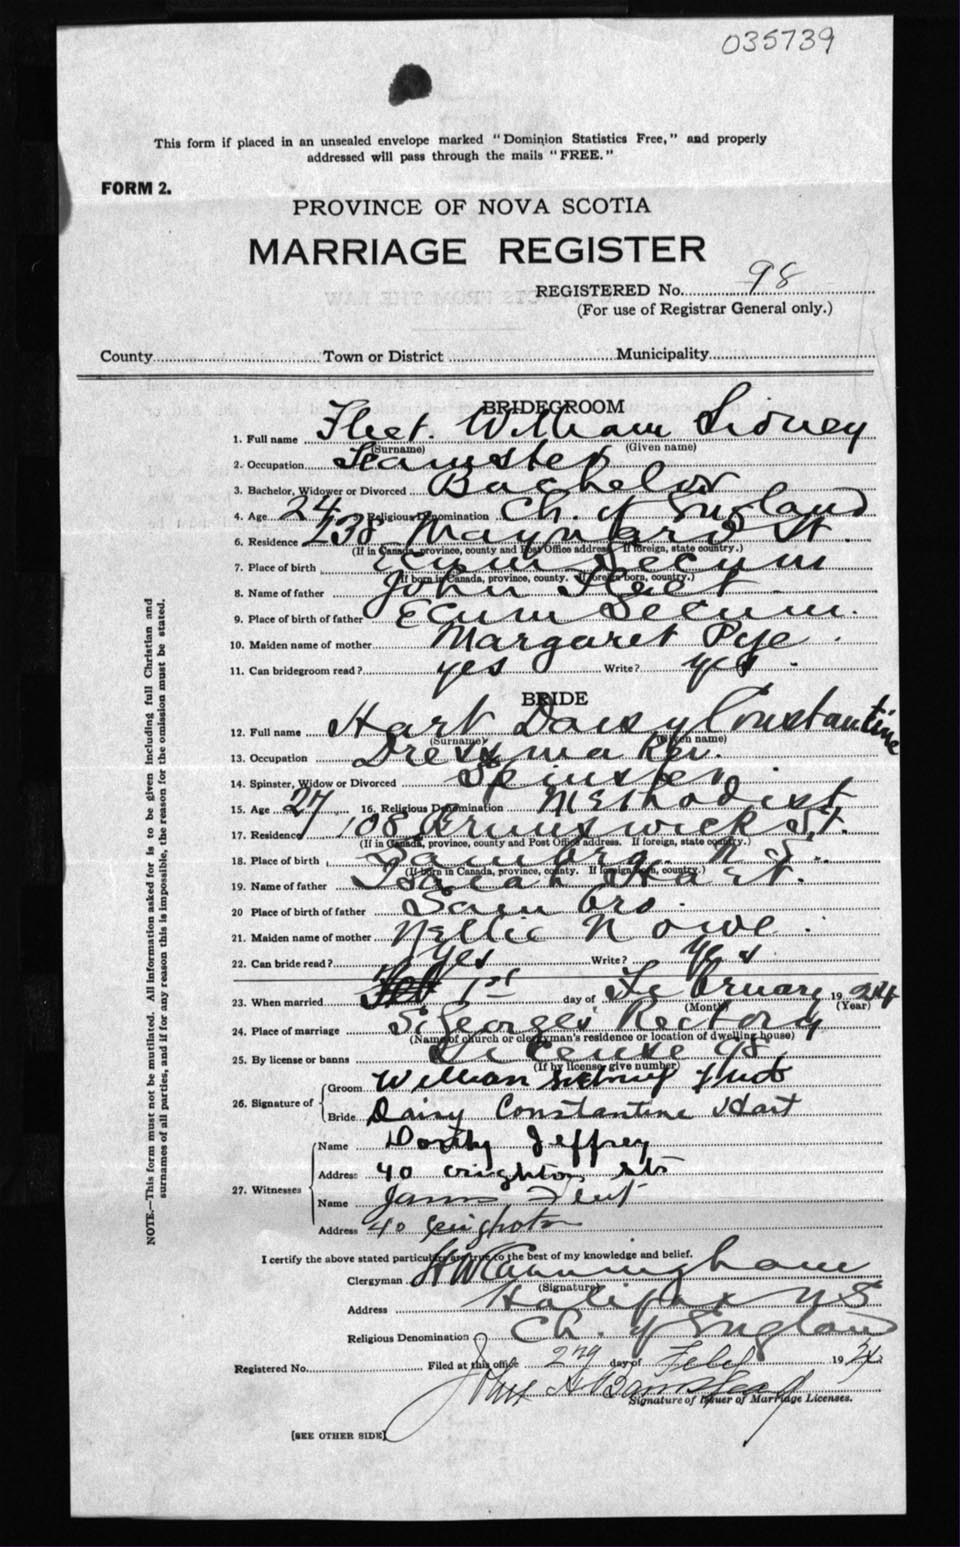 035739
This form if placed in an unsealed envelope marked "Dominion Statistics Free," and properly
addressed will pass through the mails "FREE."
FORM 2.
PROVINCE OF NOVA SCOTIA
MARRIAGE REGISTER
REGISTERED No. 98
(For use of Registrar General only.)
County Town or District Municipality
BRIDEGROOM
1. Full name Fleet. William Sidney
(Surname) (Given name)
2. Occupation Teamster
3. Bachelor, Widower or Divorced Bachelor
4. Age 24 Religious Denomination Ch. of England
6. Residence 238 Maynard St.
(If in Canada, province, county and Post Office address. If foreign, state country.)
7. Place of birth Ecum Secum
(If born in Canada, province, county. If foreign born, country.)
8. Name of father John Fleet
9. Place of birth of father Ecum Secum.
10. Maiden name of mother Margaret Pye.
11. Can bridegroom read? yes Write? yes.
BRIDE
12. Full name Hart Daisy Constantine
(Surname) (Given name)
13. Occupation Dressmaker.
14. Spinster, Widow or Divorced Spinster.
15. Age 27 16. Religious Denomination Methodist
17. Residence 108 Brunswick St.
(If in Canada, province, county and Post Office address. If foreign, state country.)
18. Place of birth Sambro. N.S.
(If born in Canada, province, county. If foreign born, country.)
19. Name of father Isaiah Hart.
20 Place of birth of father Sambro.
21. Maiden name of mother Nellie Nowe.
22. Can bride read? yes Write? yes
23. When married 1st day of February 1924
(Month) (Year)
24. Place of marriage St Georges Rectory
(Name of church or clergyman's residence or location of dwelling house)
25. By license or banns License 98
(If by license, give number)
26. Signature of Groom William Sidney Fleet
Bride Daisy Constantine Hart
27. Witnesses Name Jeffrey
Address 40 Crighton
Name James Fleet
Address 40 Crighton
I certify the above stated particulars are true to the best of my knowledge and belief.
Clergyman H W Cunningham
(Signature)
Address Halifax N S
Religious Denomination Ch. of England
Registered No. Filed at this office 2nd day of Feb 1924
John H Barnstead
Signature of Issuer of Marriage Licenses.
[SEE OTHER SIDE]
NOTE.—This form must not be mutilated. All information asked for is to be given including full Christian and
surnames of all parties, and if for any reason this is impossible, the reason for the omission must be stated.